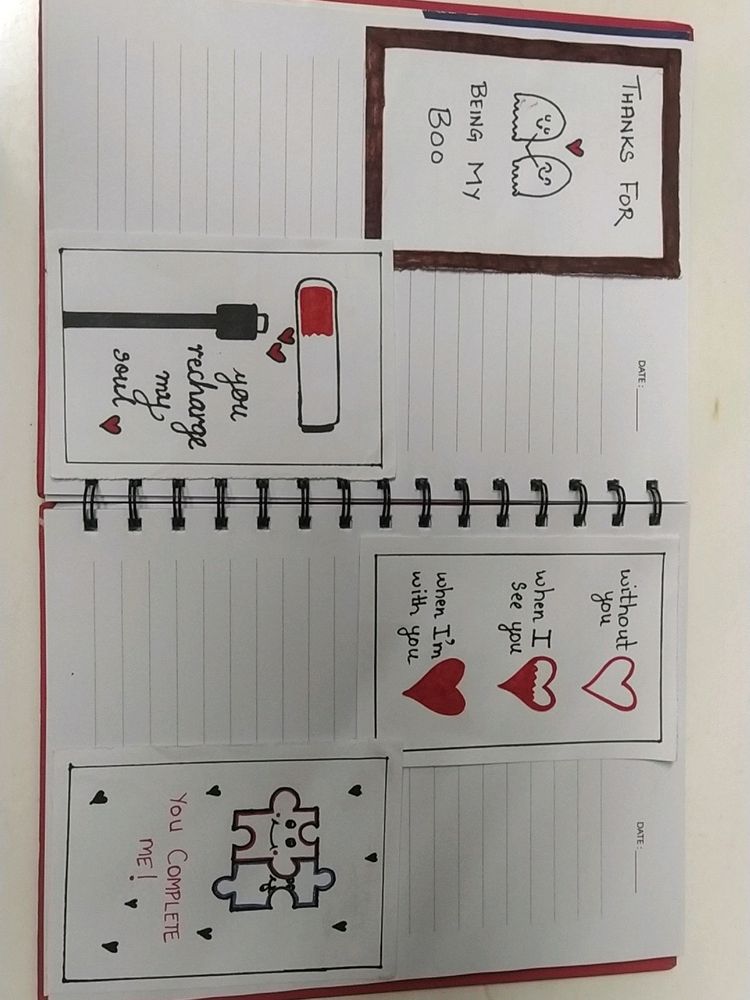 THANKS FOR
BEING MY
BOO
DATE:
you
recharge
my
soul
DATE:
without
you
when I
see you
when I'm
with you
YOU COMPLETE
ME!